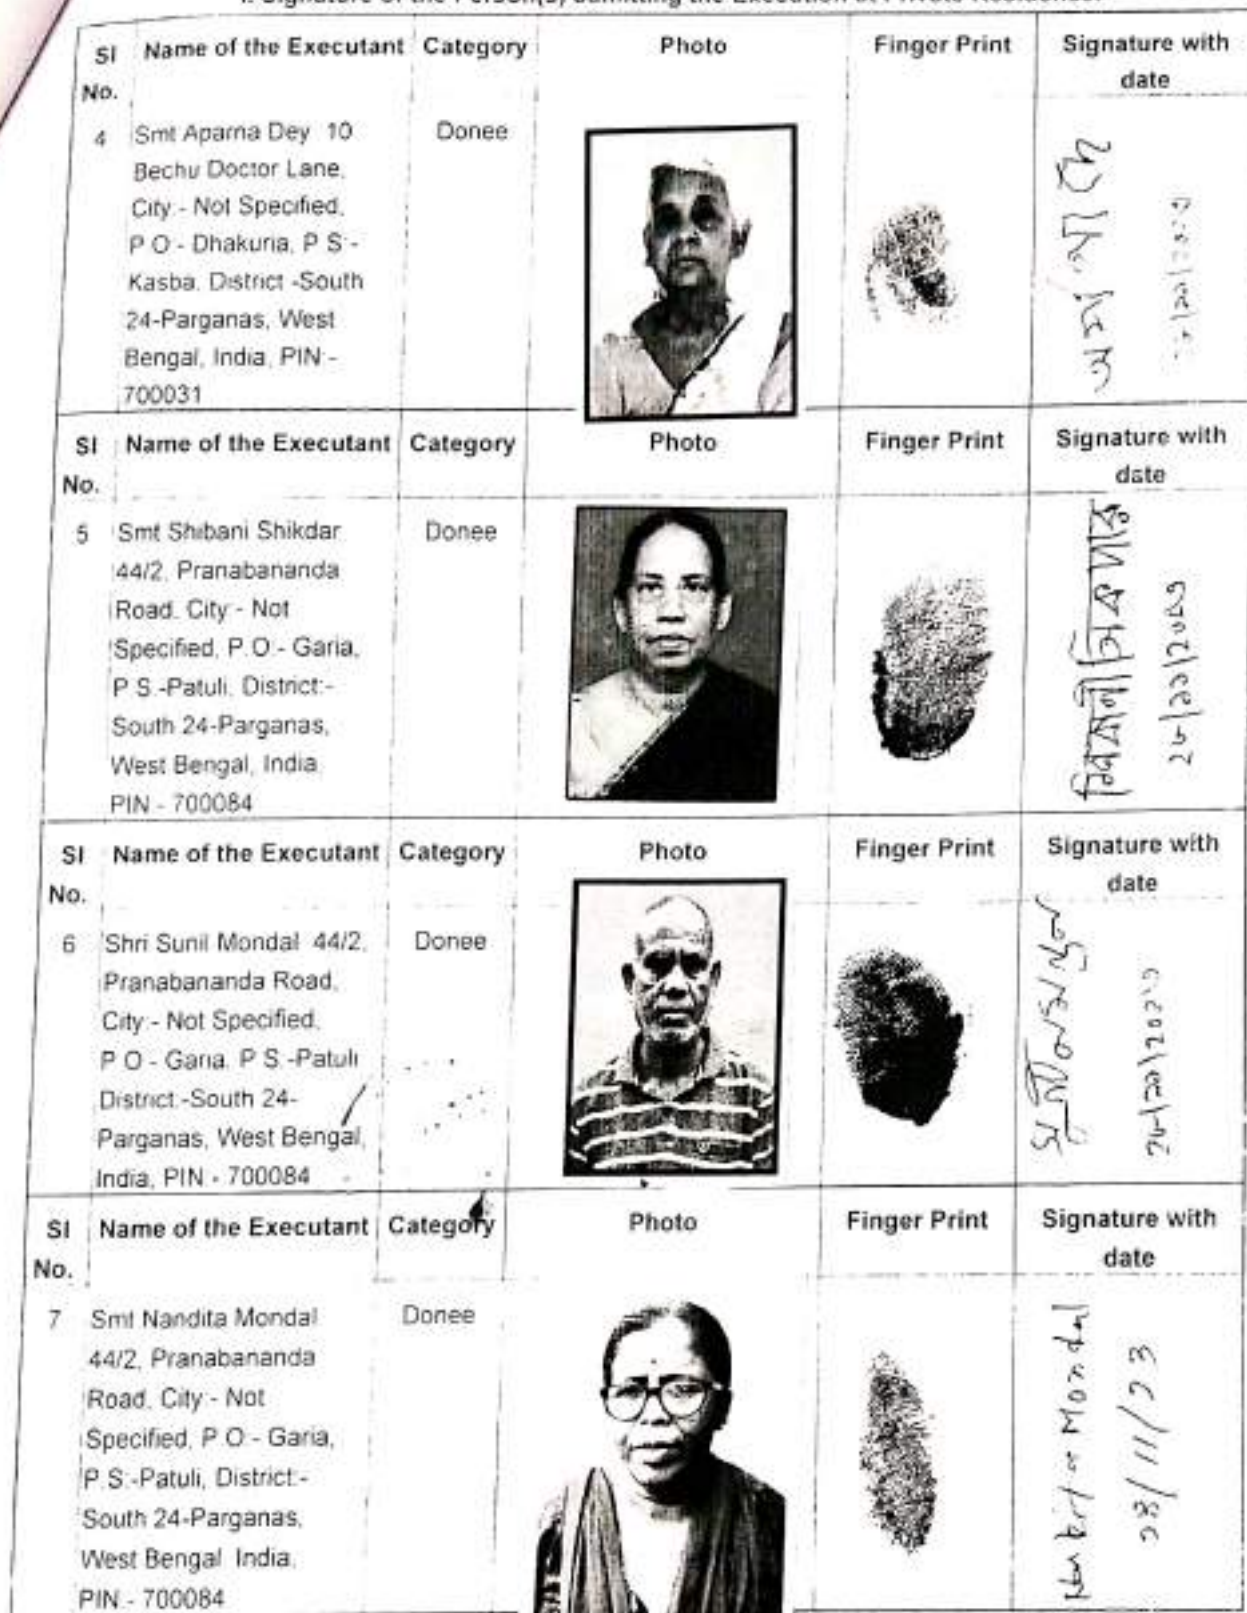 I. Signature of the Person(s) admitting the Execution at Private Residence.
SI No. Name of the Executant Category Photo Finger Print Signature with date
4 Smt Aparna Dey 10 Donee
Bechu Doctor Lane,
City:- Not Specified,
P.O:- Dhakuria, P.S:-
Kasba, District:-South
24-Parganas, West
Bengal, India, PIN:-
700031
SI No. Name of the Executant Category Photo Finger Print Signature with date
5 Smt Shibani Shikdar Donee
44/2, Pranabananda
Road, City:- Not
Specified, P.O:- Garia,
P.S:-Patuli, District:-
South 24-Parganas,
West Bengal, India,
PIN:- 700084
২৮/১১/২০২৩
SI No. Name of the Executant Category Photo Finger Print Signature with date
6 Shri Sunil Mondal 44/2, Donee
Pranabananda Road,
City:- Not Specified,
P.O:- Garia, P.S:-Patuli
District:-South 24-
Parganas, West Bengal,
India, PIN:- 700084
২৮/১১/২০২৩
SI No. Name of the Executant Category Photo Finger Print Signature with date
7 Smt Nandita Mondal Donee
44/2, Pranabananda
Road, City:- Not
Specified, P.O:- Garia,
P.S:-Patuli, District:-
South 24-Parganas,
West Bengal, India,
PIN:- 700084
Mondal
28/11/23